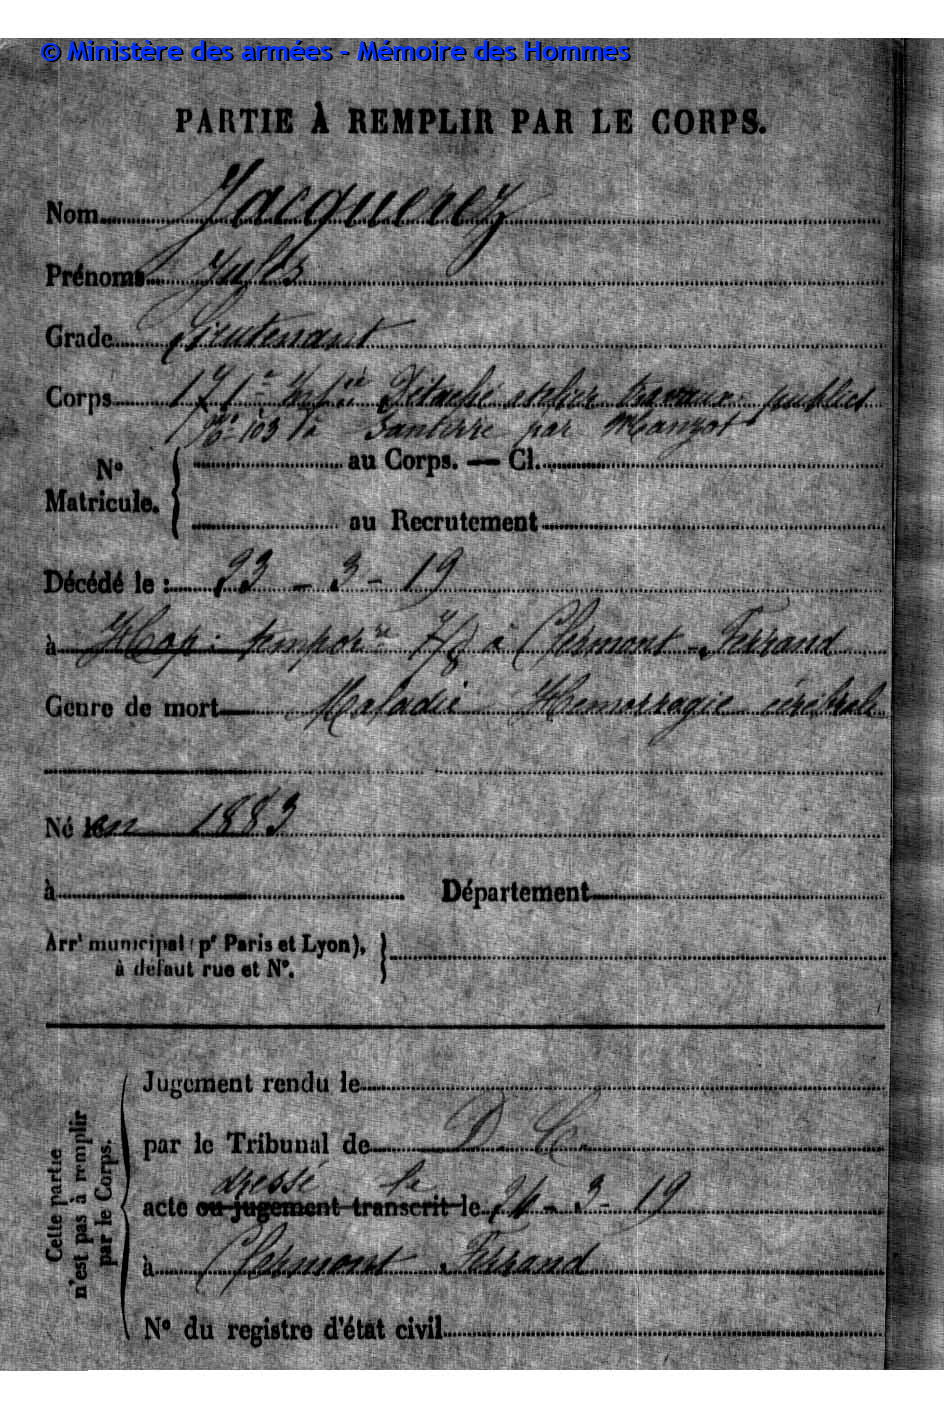 © Ministère des armées - Mémoire des Hommes
PARTIE À REMPLIR PAR LE CORPS.
Nom Jacquerez
Prénoms Jules
Grade Lieutenant
Corps 171e Détaché atelier travaux publics
Nº 103 à par
Nº Matricule. au Corps. — Cl.
au Recrutement
Décédé le : 23 - 3 - 19
à Hop. tempor.re 78 à Clermont-Ferrand
Genre de mort Maladie Hemorragie cérébrale
Né le en 1883
à Département
Arrt municipal (pr Paris et Lyon),
à défaut rue et Nº.
Cette partie
n'est pas à remplir
par le Corps.
Jugement rendu le
par le Tribunal de D. C.
dressé le
acte ou jugement transcrit le 24 - 3 - 19
à Clermont Ferrand
Nº du registre d'état civil